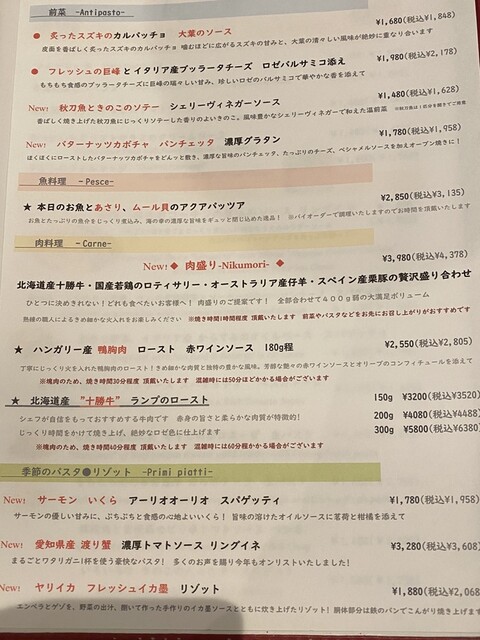 前菜 -Antipasto-
● 炙ったスズキのカルパッチョ 大葉のソース ¥1,680(税込¥1,848)
皮面を香ばしく炙ったスズキのカルパッチョ 噛むほどに広がるスズキの甘みと、大葉の清々しい風味が絶妙に重なり合います
● フレッシュの巨峰とイタリア産ブッラータチーズ ロゼバルサミコ添え ¥1,980(税込¥2,178)
もちもち食感のブッラータチーズに巨峰の瑞々しい甘み、珍しいロゼのバルサミコで華やかな香を添えて
New! 秋刀魚ときのこのソテー シェリーヴィネガーソース ¥1,480(税込¥1,628)
香ばしく焼き上げた秋刀魚にじっくりソテーした香りのよいきのこ。風味豊かなシェリーヴィネガーで和えた温前菜
New! バターナッツカボチャ パンチェッタ 濃厚グラタン ¥1,780(税込¥1,958)
ほくほくにローストしたバターナッツカボチャをどんっと敷き、濃厚な旨味のパンチェッタ、たっぷりのチーズ、ベシャメルソースを加えオーブン焼きに!
魚料理 -Pesce-
★ 本日のお魚とあさり、ムール貝のアクアパッツァ ¥2,850(税込¥3,135)
お魚とたっぷりの魚介をじっくり煮込み、海の幸の濃厚な旨味をギュッと閉じ込めた逸品! ※バイオーダーで調理いたしますのでお時間を頂戴いたします
肉料理 -Carne-
New! ◆ 肉盛り-Nikumori- ◆ ¥3,980(税込¥4,378)
北海道産十勝牛・国産若鶏のロティサリー・オーストラリア産仔羊・スペイン産栗豚の贅沢盛り合わせ
ひとつに決めきれない!どれも食べたいお客様へ! 肉盛りのご提案です! 全部合わせて400g弱の大満足ボリューム
熟練の職人によるきめ細かな火入れをお楽しみください ※焼き時間1時間程度 頂戴いたします 前菜やパスタなどをお先にお召し上がりがおすすめです
★ ハンガリー産 鴨胸肉 ロースト 赤ワインソース 180g程 ¥2,550(税込¥2,805)
丁寧にじっくり火を入れた鴨胸肉のロースト!きめ細かな肉質と独特の豊かな風味。芳醇な艶々の赤ワインソースとオリーブのコンフィチュールを添えて
※塊肉のため、焼き時間30分程度 頂戴いたします 混雑時には50分ほどかかる場合がございます
★ 北海道産 ”十勝牛” ランプのロースト 150g ¥3200(税込¥3520)
シェフが自信をもっておすすめする牛肉です 赤身の旨さと柔らかな肉質が特徴的! 200g ¥4080(税込¥4488)
じっくり時間をかけて焼き上げ、絶妙なロゼ色に仕上げます 300g ¥5800(税込¥6380)
※塊肉のため、焼き時間40分程度 頂戴いたします 混雑時には60分程かかる場合がございます
季節のパスタ●リゾット -Primi piatti-
New! サーモン いくら アーリオオーリオ スパゲッティ ¥1,780(税込¥1,958)
サーモンの優しい甘みに、ぷちぷちと食感の心地よいいくら! 旨味の溶けたオイルソースに茗荷と柑橘を添えて
New! 愛知県産 渡り蟹 濃厚トマトソース リングイネ ¥3,280(税込¥3,608)
まるごとワタリガニ1杯を使う豪快なパスタ! 多くのお声を賜り今年もオンリストいたしました!
New! ヤリイカ フレッシュイカ墨 リゾット ¥1,880(税込¥2,068
エンペラとゲソを、野菜の出汁、捌いて作った手作りのイカ墨ソースとともに炊き上げたリゾット! 胴体部分は鉄のパンでこんがり焼き上げて頂